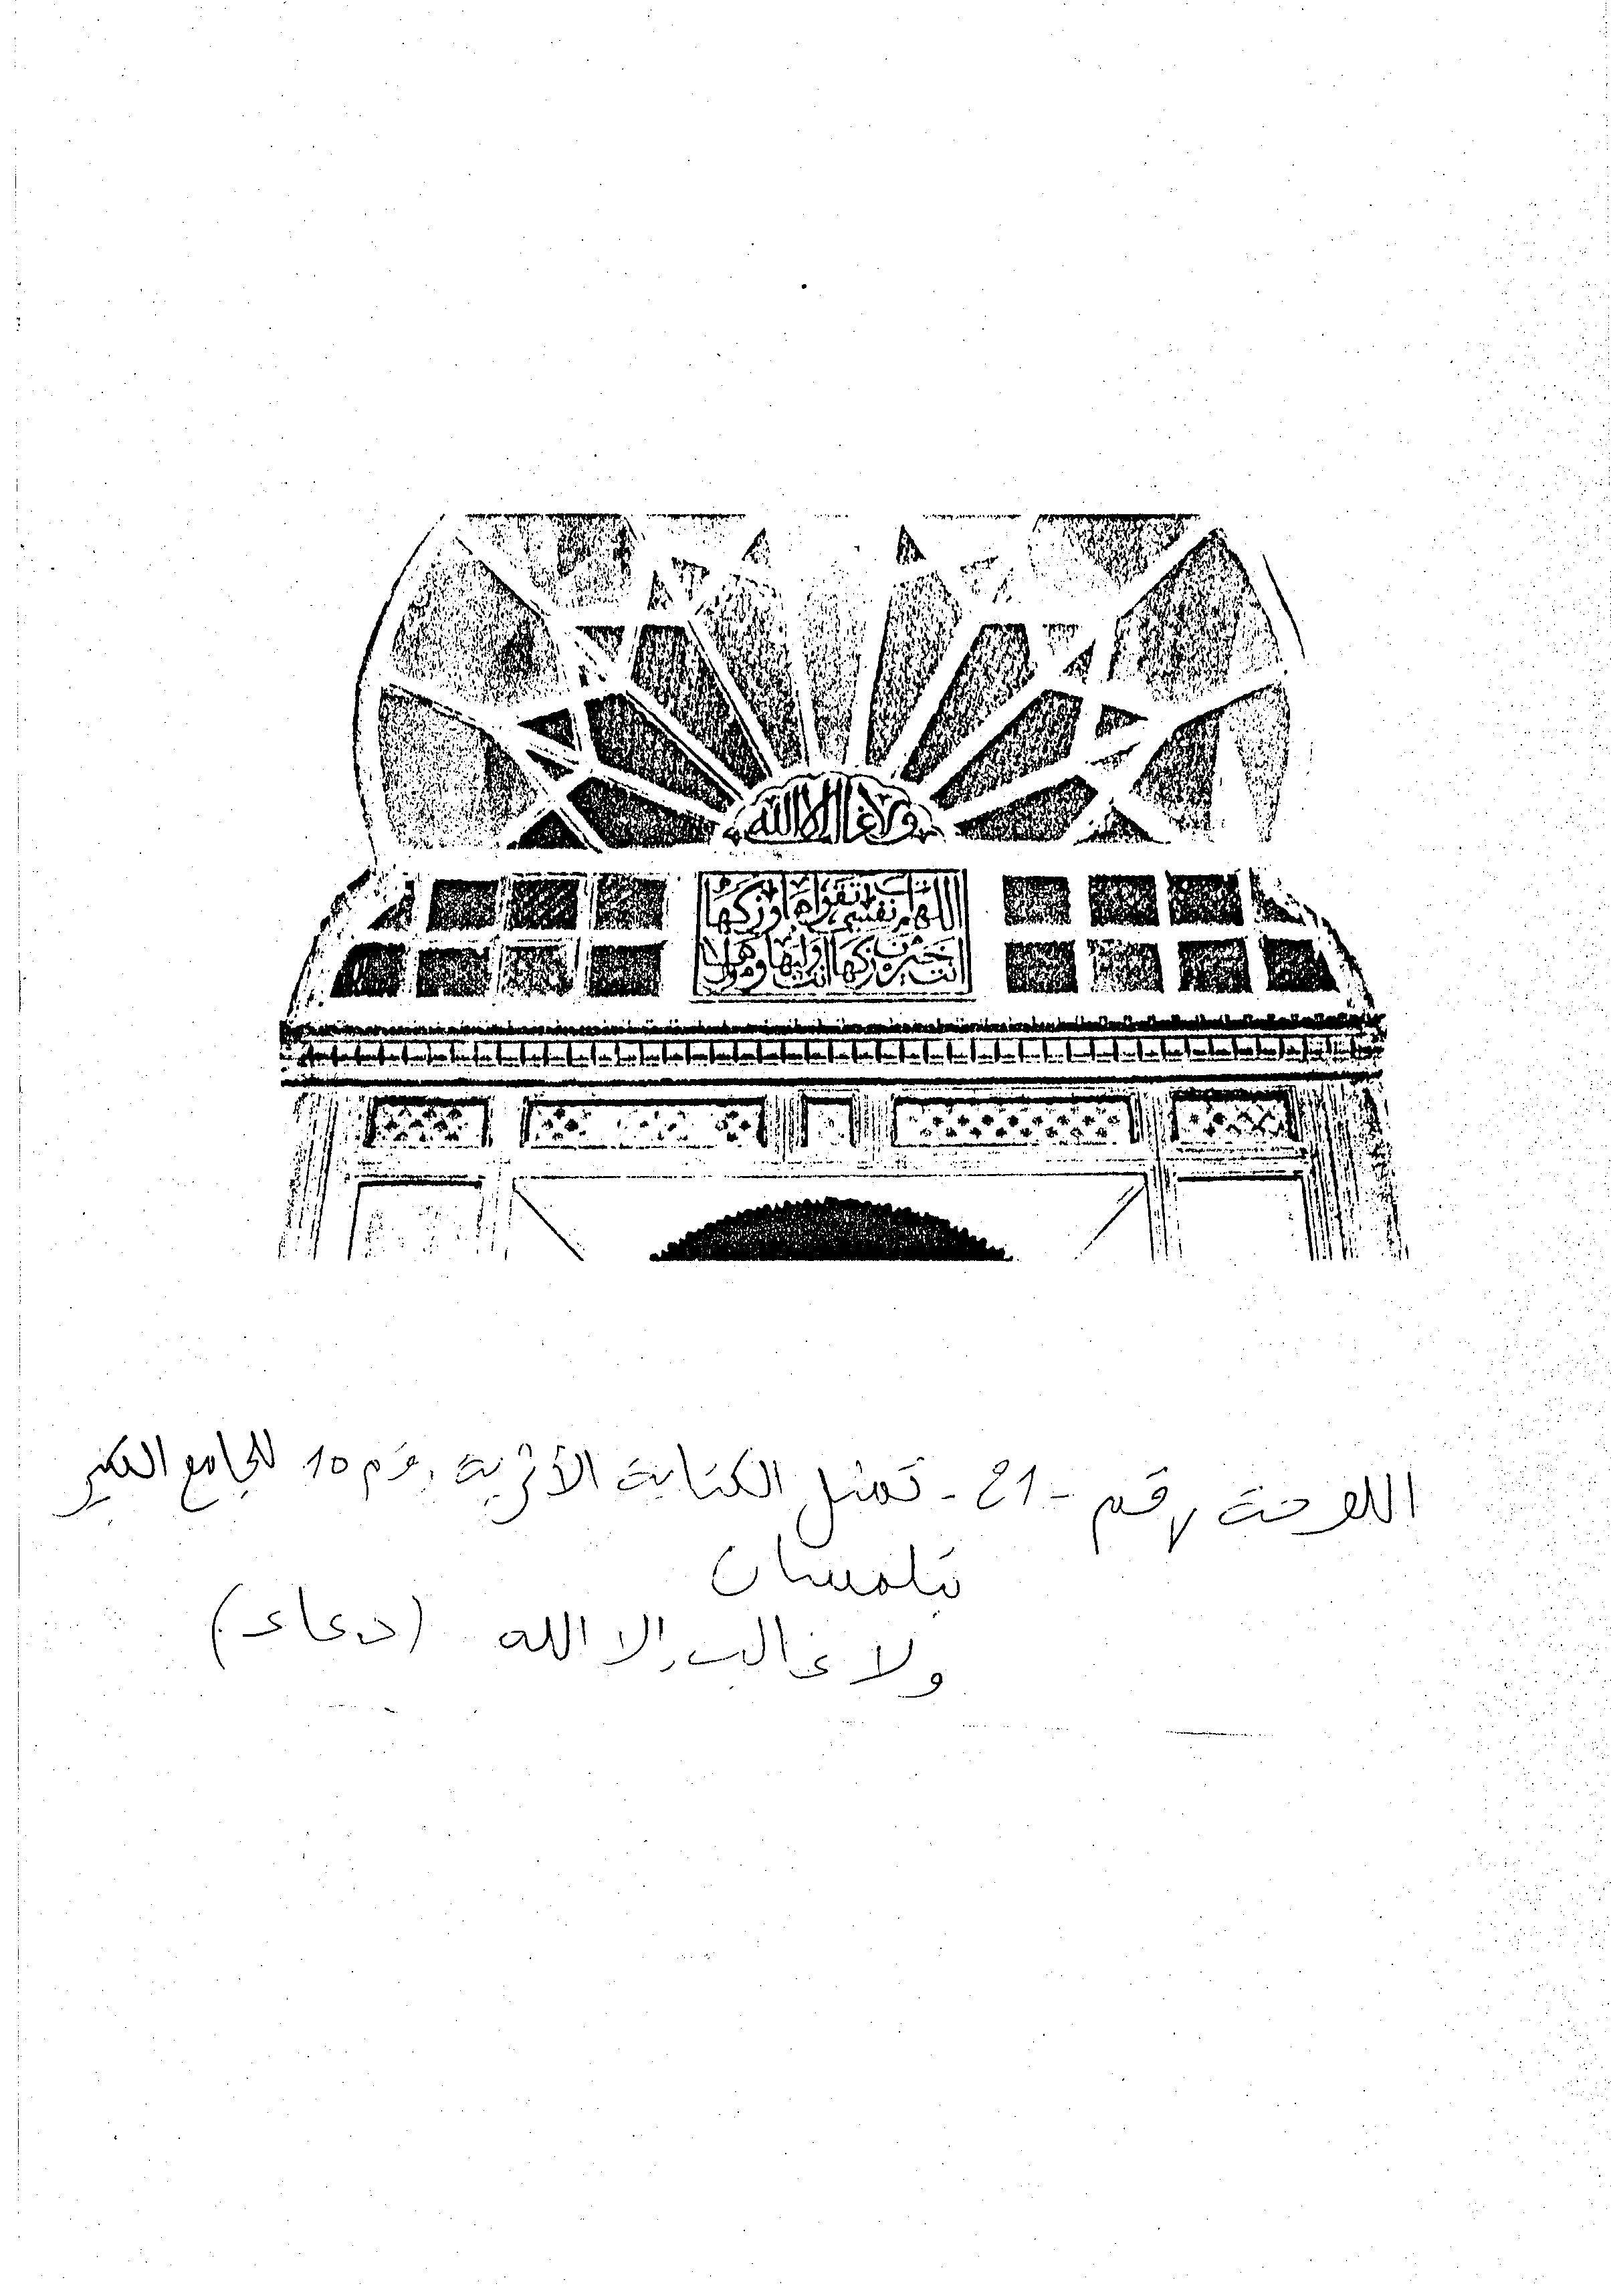 ولا غالب إلا الله
اللهم ءات نفسي تقواها وزكها
أنت خير من زكاها أنت وليها ومولاها
اللوحة رقم - 21 - تمثل الكتابة الأثرية رقم 10 للجامع الكبير
بتلمسان
ولا غالب إلا الله (دعاء)